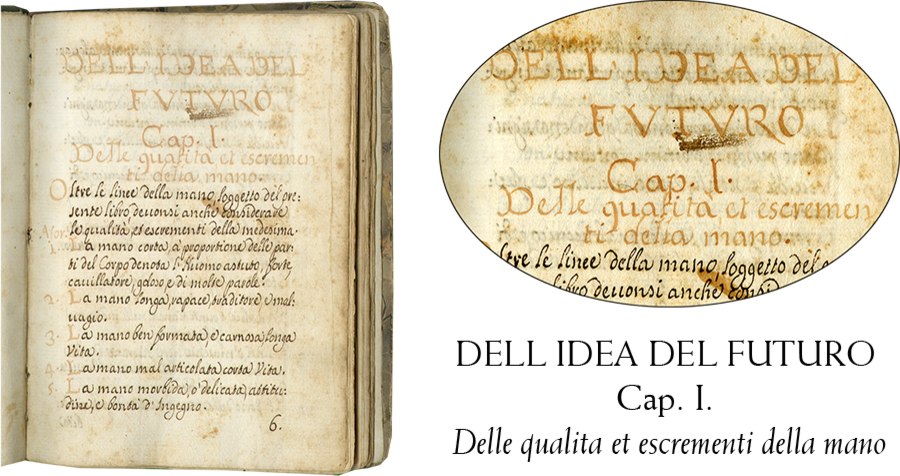 DELL IDEA DEL
FUTURO
Cap. I.
Delle qualita et escremen
ti della mano.
Oltre le linee della mano, soggetto del pre=
sente libro deuonsi anche considerare
le qualità, et escrementi della medesima.
La mano corta, à proportione delle par=
ti del Corpo denota l'Huomo astuto, forte
cauillatore, goloso, e di molte parole.
2. La mano longa, rapace, traditore, e mal=
uagio.
3. La mano ben formata, e carnosa, longa
Vita.
4. La mano mal articolata, corta Vita.
5. La mano morbida, ò delicata, attitu=
dine, e bontà d'Ingegno.
6.
DELL IDEA DEL
FUTURO
Cap. I.
Delle qualita et escremen
ti della mano.
ltre le linee della mano, soggetto del
libro deuonsi anche consi
DELL IDEA DEL FUTURO
Cap. I.
Delle qualita et escrementi della mano